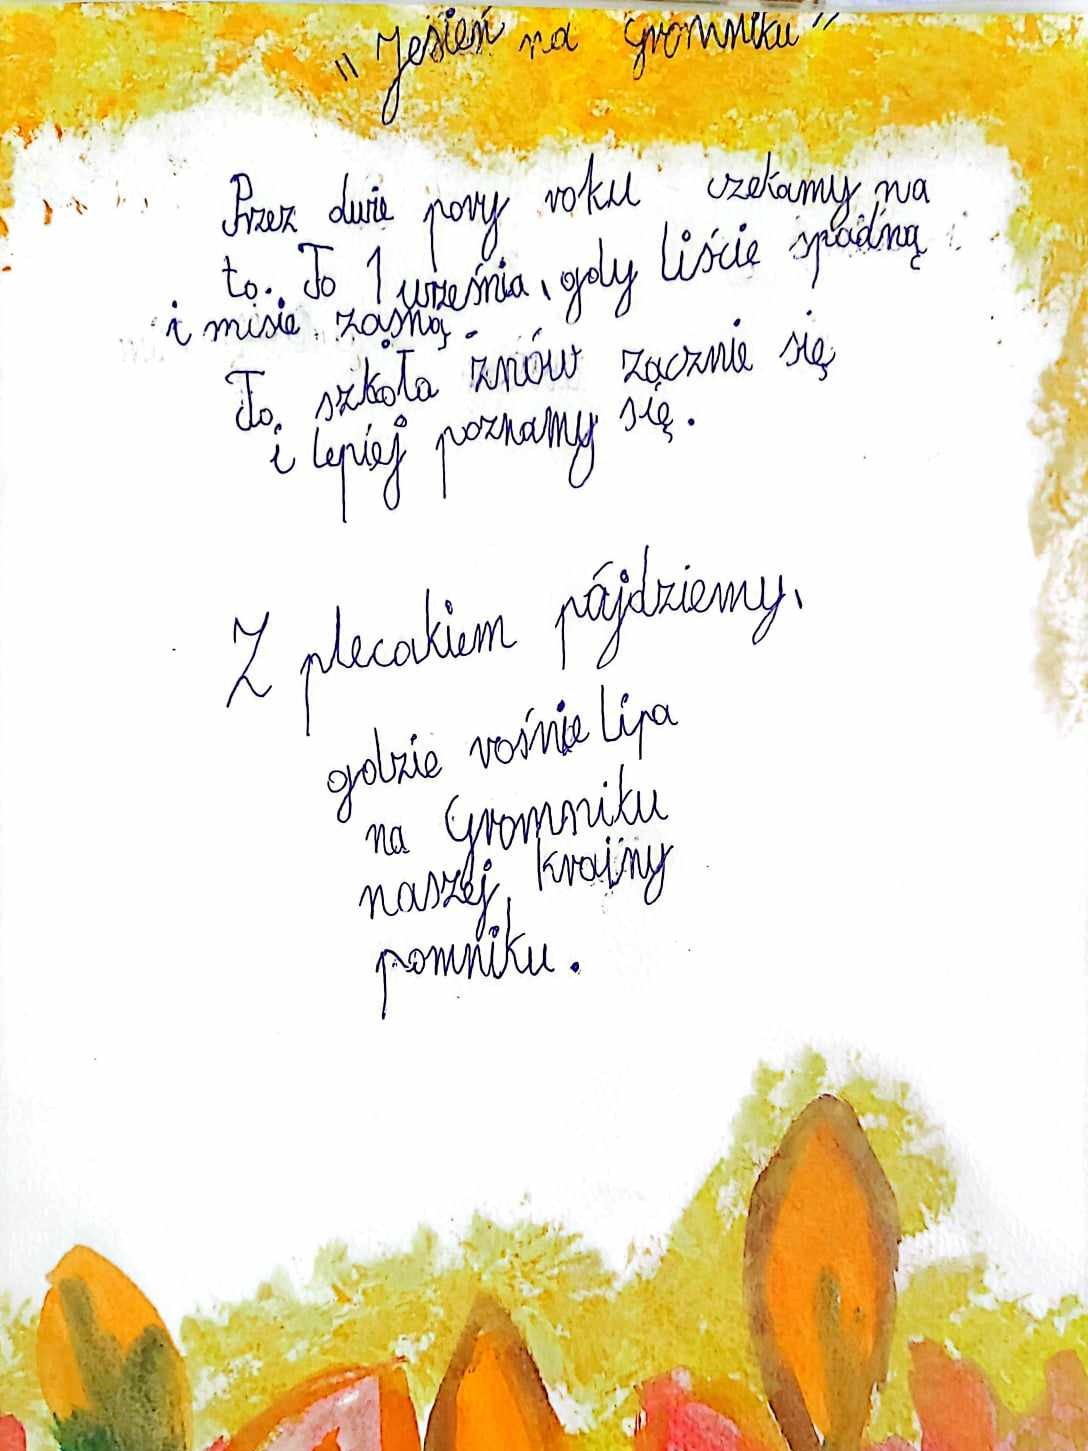 "Jesień na Gromniku"
Przez dwie pory roku czekamy na
to. To 1 września, gdy liście spadną
i misie zasną.
To szkoła znów zacznie się
i lepiej poznamy się.
Z plecakiem pójdziemy,
gdzie rośnie lipa
na Gromniku
naszej krainy
pomniku.